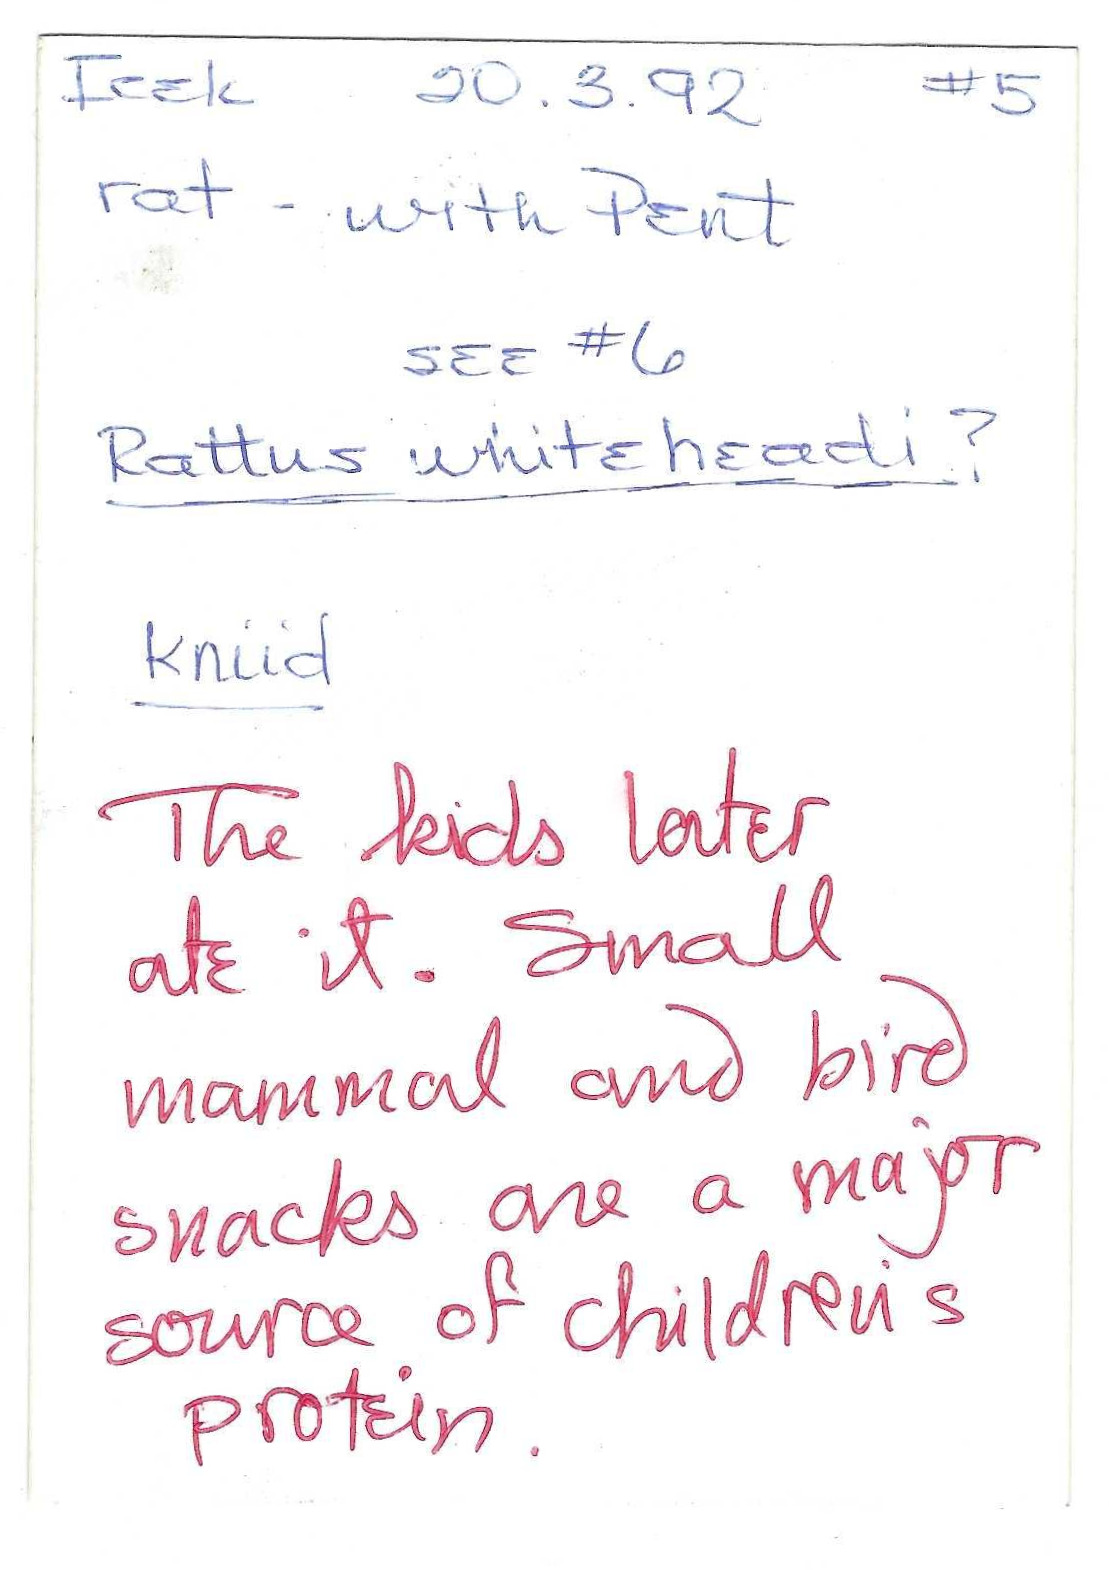 Icek 20.3.92 #5
rat - with Pent
see #6
Rattus whiteheadi?
kniid
The kids later
ate it. Small
mammal and bird
snacks are a major
source of children's
protein.